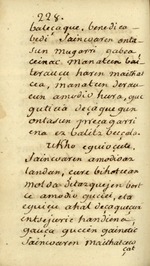 228.
baleçaque, benedica
bedi Jaincoaren onta
sun mugarri gabea
ceinac manatcen bai
terauzu haren maitha
cea, manatcen derau
cun amodio hura, gue
guticia deçaquegun
ontasun preçagarri
ena ez balitz beçala.
Ukho eguioçute,
Jaincoaren amodioaz
landan, çure bihotcean
molda ditazquejen bert
ce amodio guciei, eta
eguiçu ahal deçaquçun
intsejuric handiena,
gauça gucien gainetic
Jaincoaren maithatceco
çat